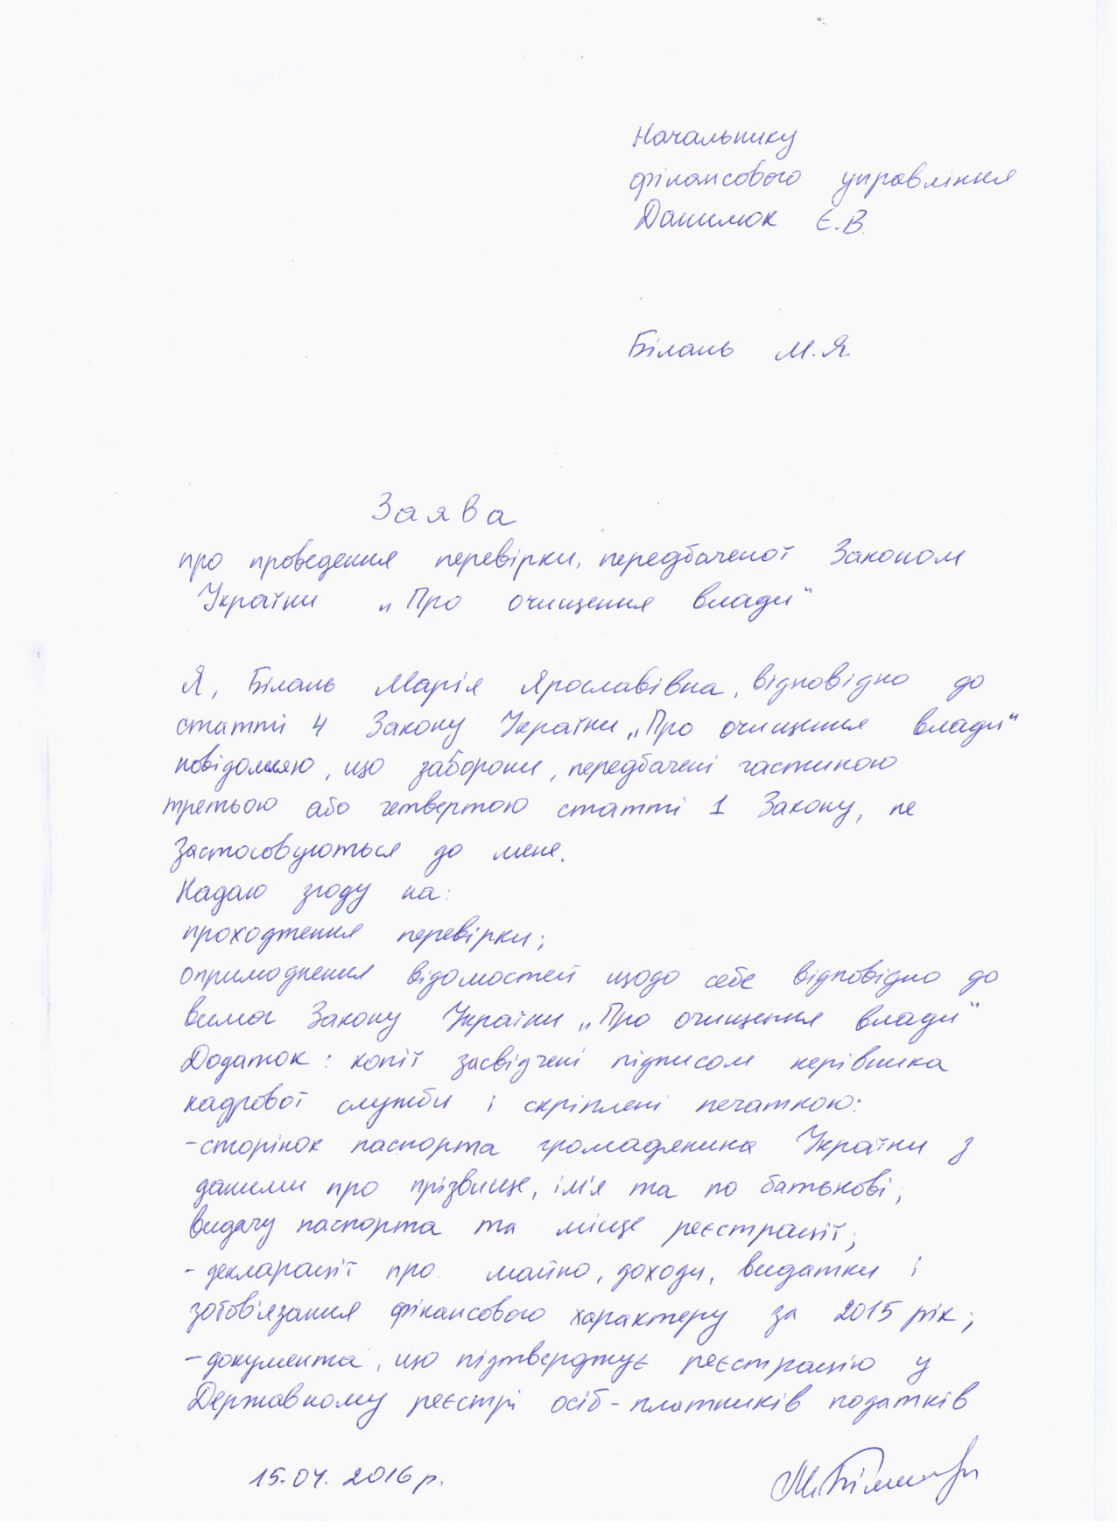 Начальнику
фінансового управління
Данилюк Є.В.
Білань М.Я.
Заява
про проведення перевірки, передбаченої Законом
України „Про очищення влади"
Я, Білань Марія Ярославівна, відповідно до
статті 4 Закону України „Про очищення влади"
повідомляю, що заборони, передбачені частиною
третьою або четвертою статті 1 Закону, не
застосовуються до мене.
Надаю згоду на:
проходження перевірки;
оприлюднення відомостей щодо себе відповідно до
вимог Закону України „Про очищення влади"
Додаток: копії засвідчені підписом керівника
кадрової служби і скріплені печаткою:
-сторінок паспорта громадянина України з
даними про прізвище, ім'я та по батькові,
видачу паспорта та місце реєстрації;
- декларації про майно, доходи, видатки і
зобов'язання фінансового характеру за 2015 рік;
-документа, що підтверджує реєстрацію у
Державному реєстрі осіб-платників податків
15.04.2016р.